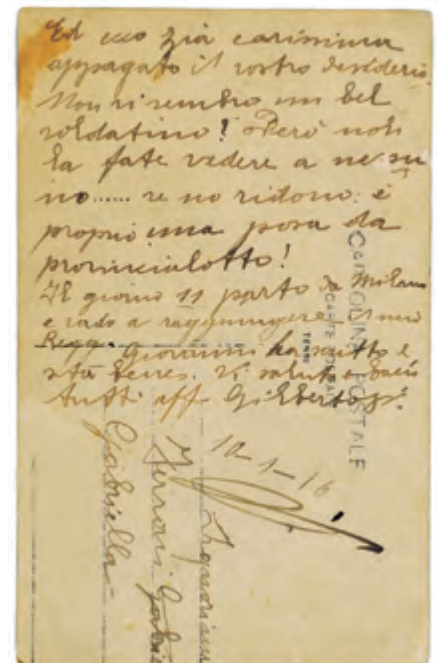 Ed ecco zia carissima
appagato il vostro desiderio.
Non vi sembro un bel
soldatino! Però non
la fate vedere a nessu
no...... se no ridono: è
proprio una posa da
provincialotto!
Il giorno 11 parto da Milano
e vado a raggiungere il mio
Regg. Giovanni ha scritto e
sta bene. Vi saluto e bacio
tutti aff Gilberto
10-1-16
CARTOLINA POSTALE
Ferrari Gabrie
Gabriella